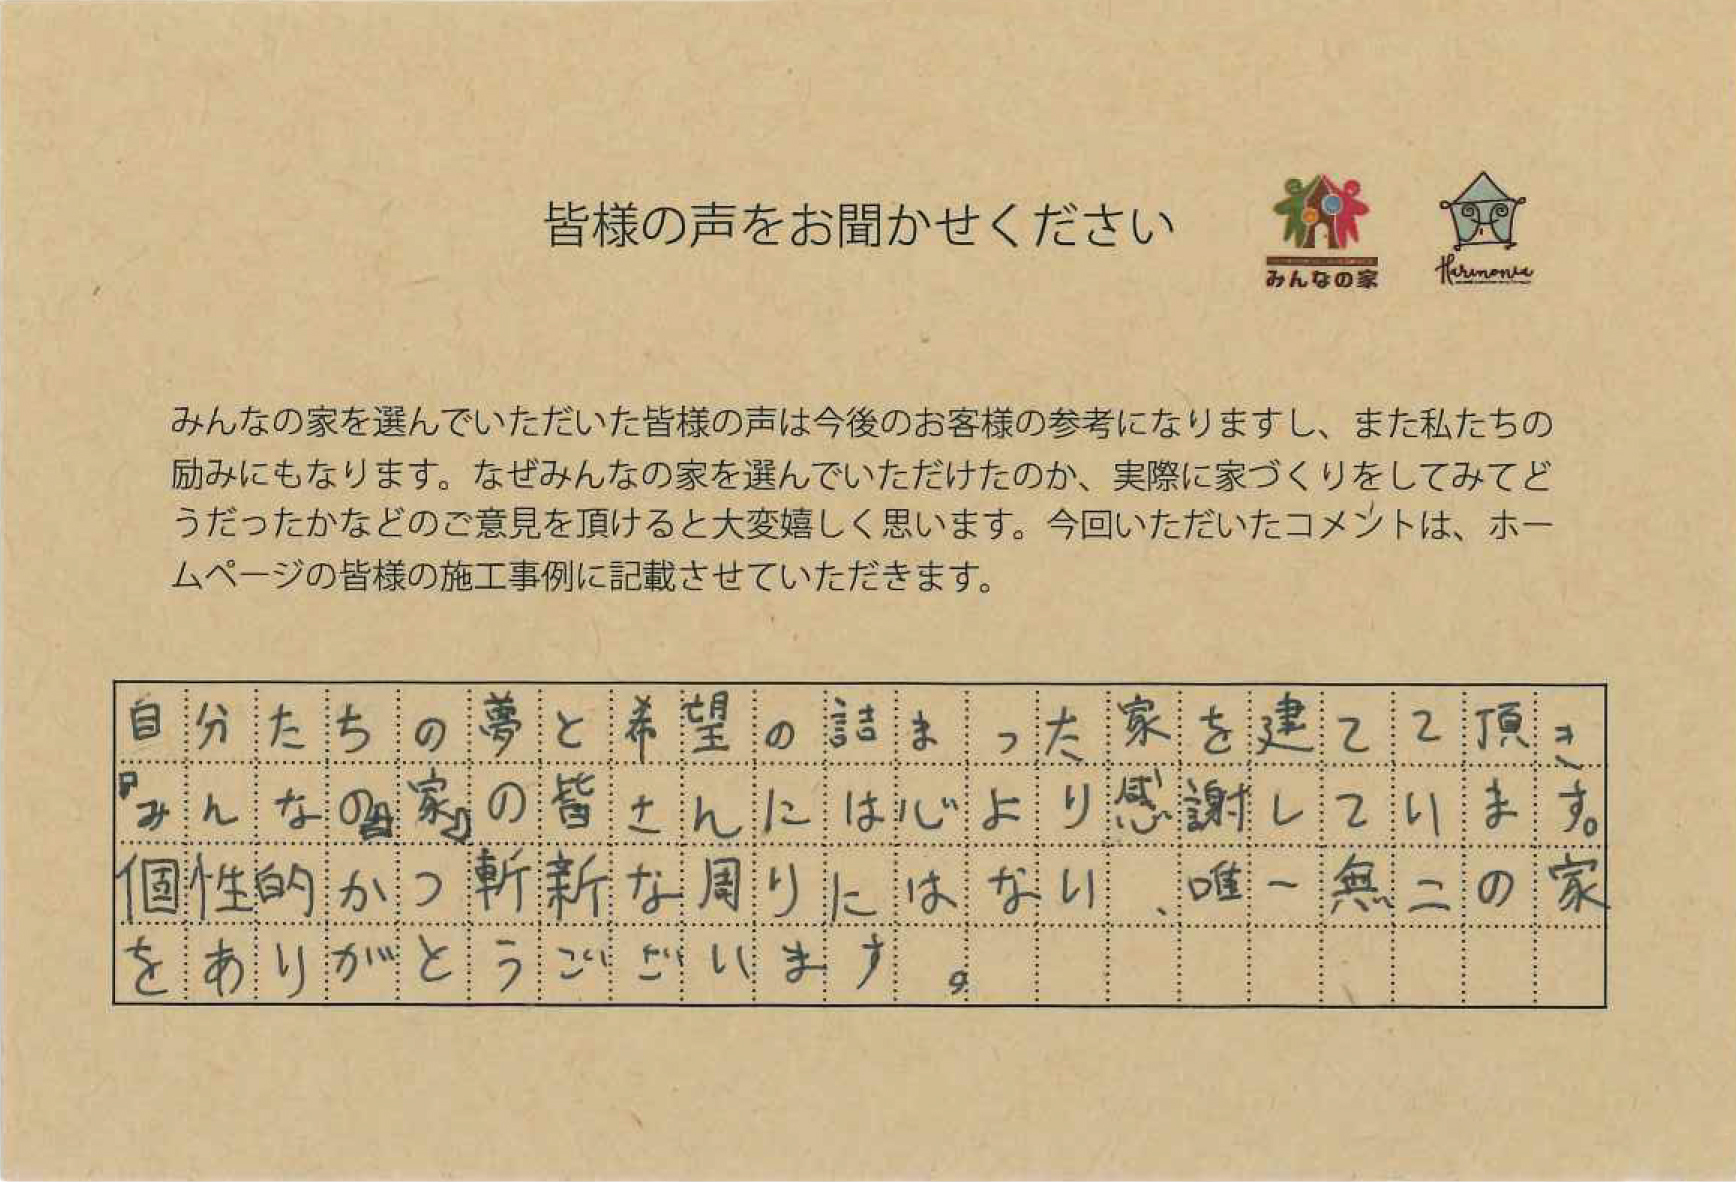 皆様の声をお聞かせください
みんなの家
Harmonia
みんなの家を選んでいただいた皆様の声は今後のお客様の参考になりますし、また私たちの
励みにもなります。なぜみんなの家を選んでいただけたのか、実際に家づくりをしてみてど
うだったかなどのご意見を頂けると大変嬉しく思います。今回いただいたコメントは、ホー
ムページの皆様の施工事例に記載させていただきます。
自分たちの夢と希望の詰まった家を建てて頂き
『みんなの家』の皆さんには心より感謝しています。
個性的かつ斬新な周りにはない、唯一無二の家
をありがとうございます。